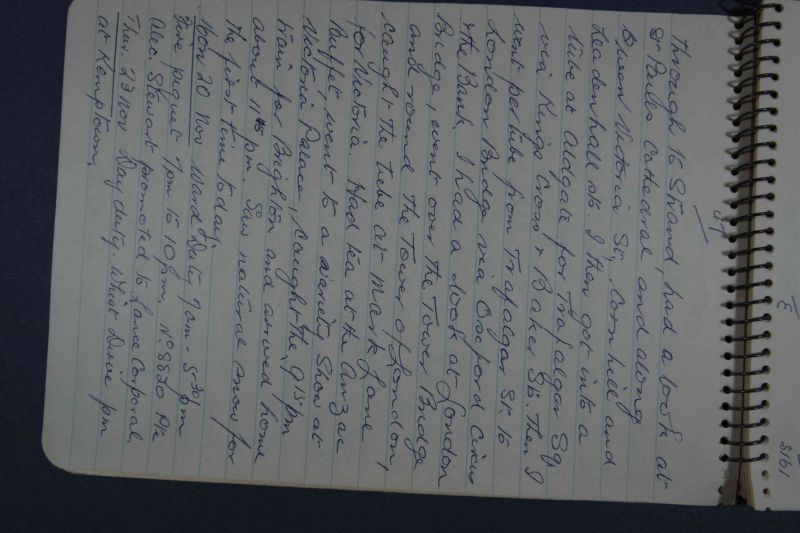 47
through to Strand, had a look at
St Pauls Cathedral and along
Queen Victoria St, Cornhill and
Leadenhall sts I then got into a
tube at Aldgate for Trafalgar Sq
via Kings Cross & Baker St. Then I
went per tube from Trafalgar Sr. to
London Bridge via Oxford Circus
the Bank I had a look at London
Bridge, went over the Tower Bridge
and round the Tower of London,
caught the tube at Mark Lane
for Victoria Had tea at the Anzac
Buffet, went to a variety show at
Victoria Palace, caught the 9 15 pm
train for Brighton and arrived home
about 11 pm Saw natural snow for
the first time today.
Mon 20 Nov Ward Duty 7am - 5-30 pm
Fire piquet 7pm to 10pm, No. 8820 Pte
Alec. Stewart promoted to Lance Corporal
Thur 23 Nov Day duty. Whist Drive pm
at Kemptown,
1915